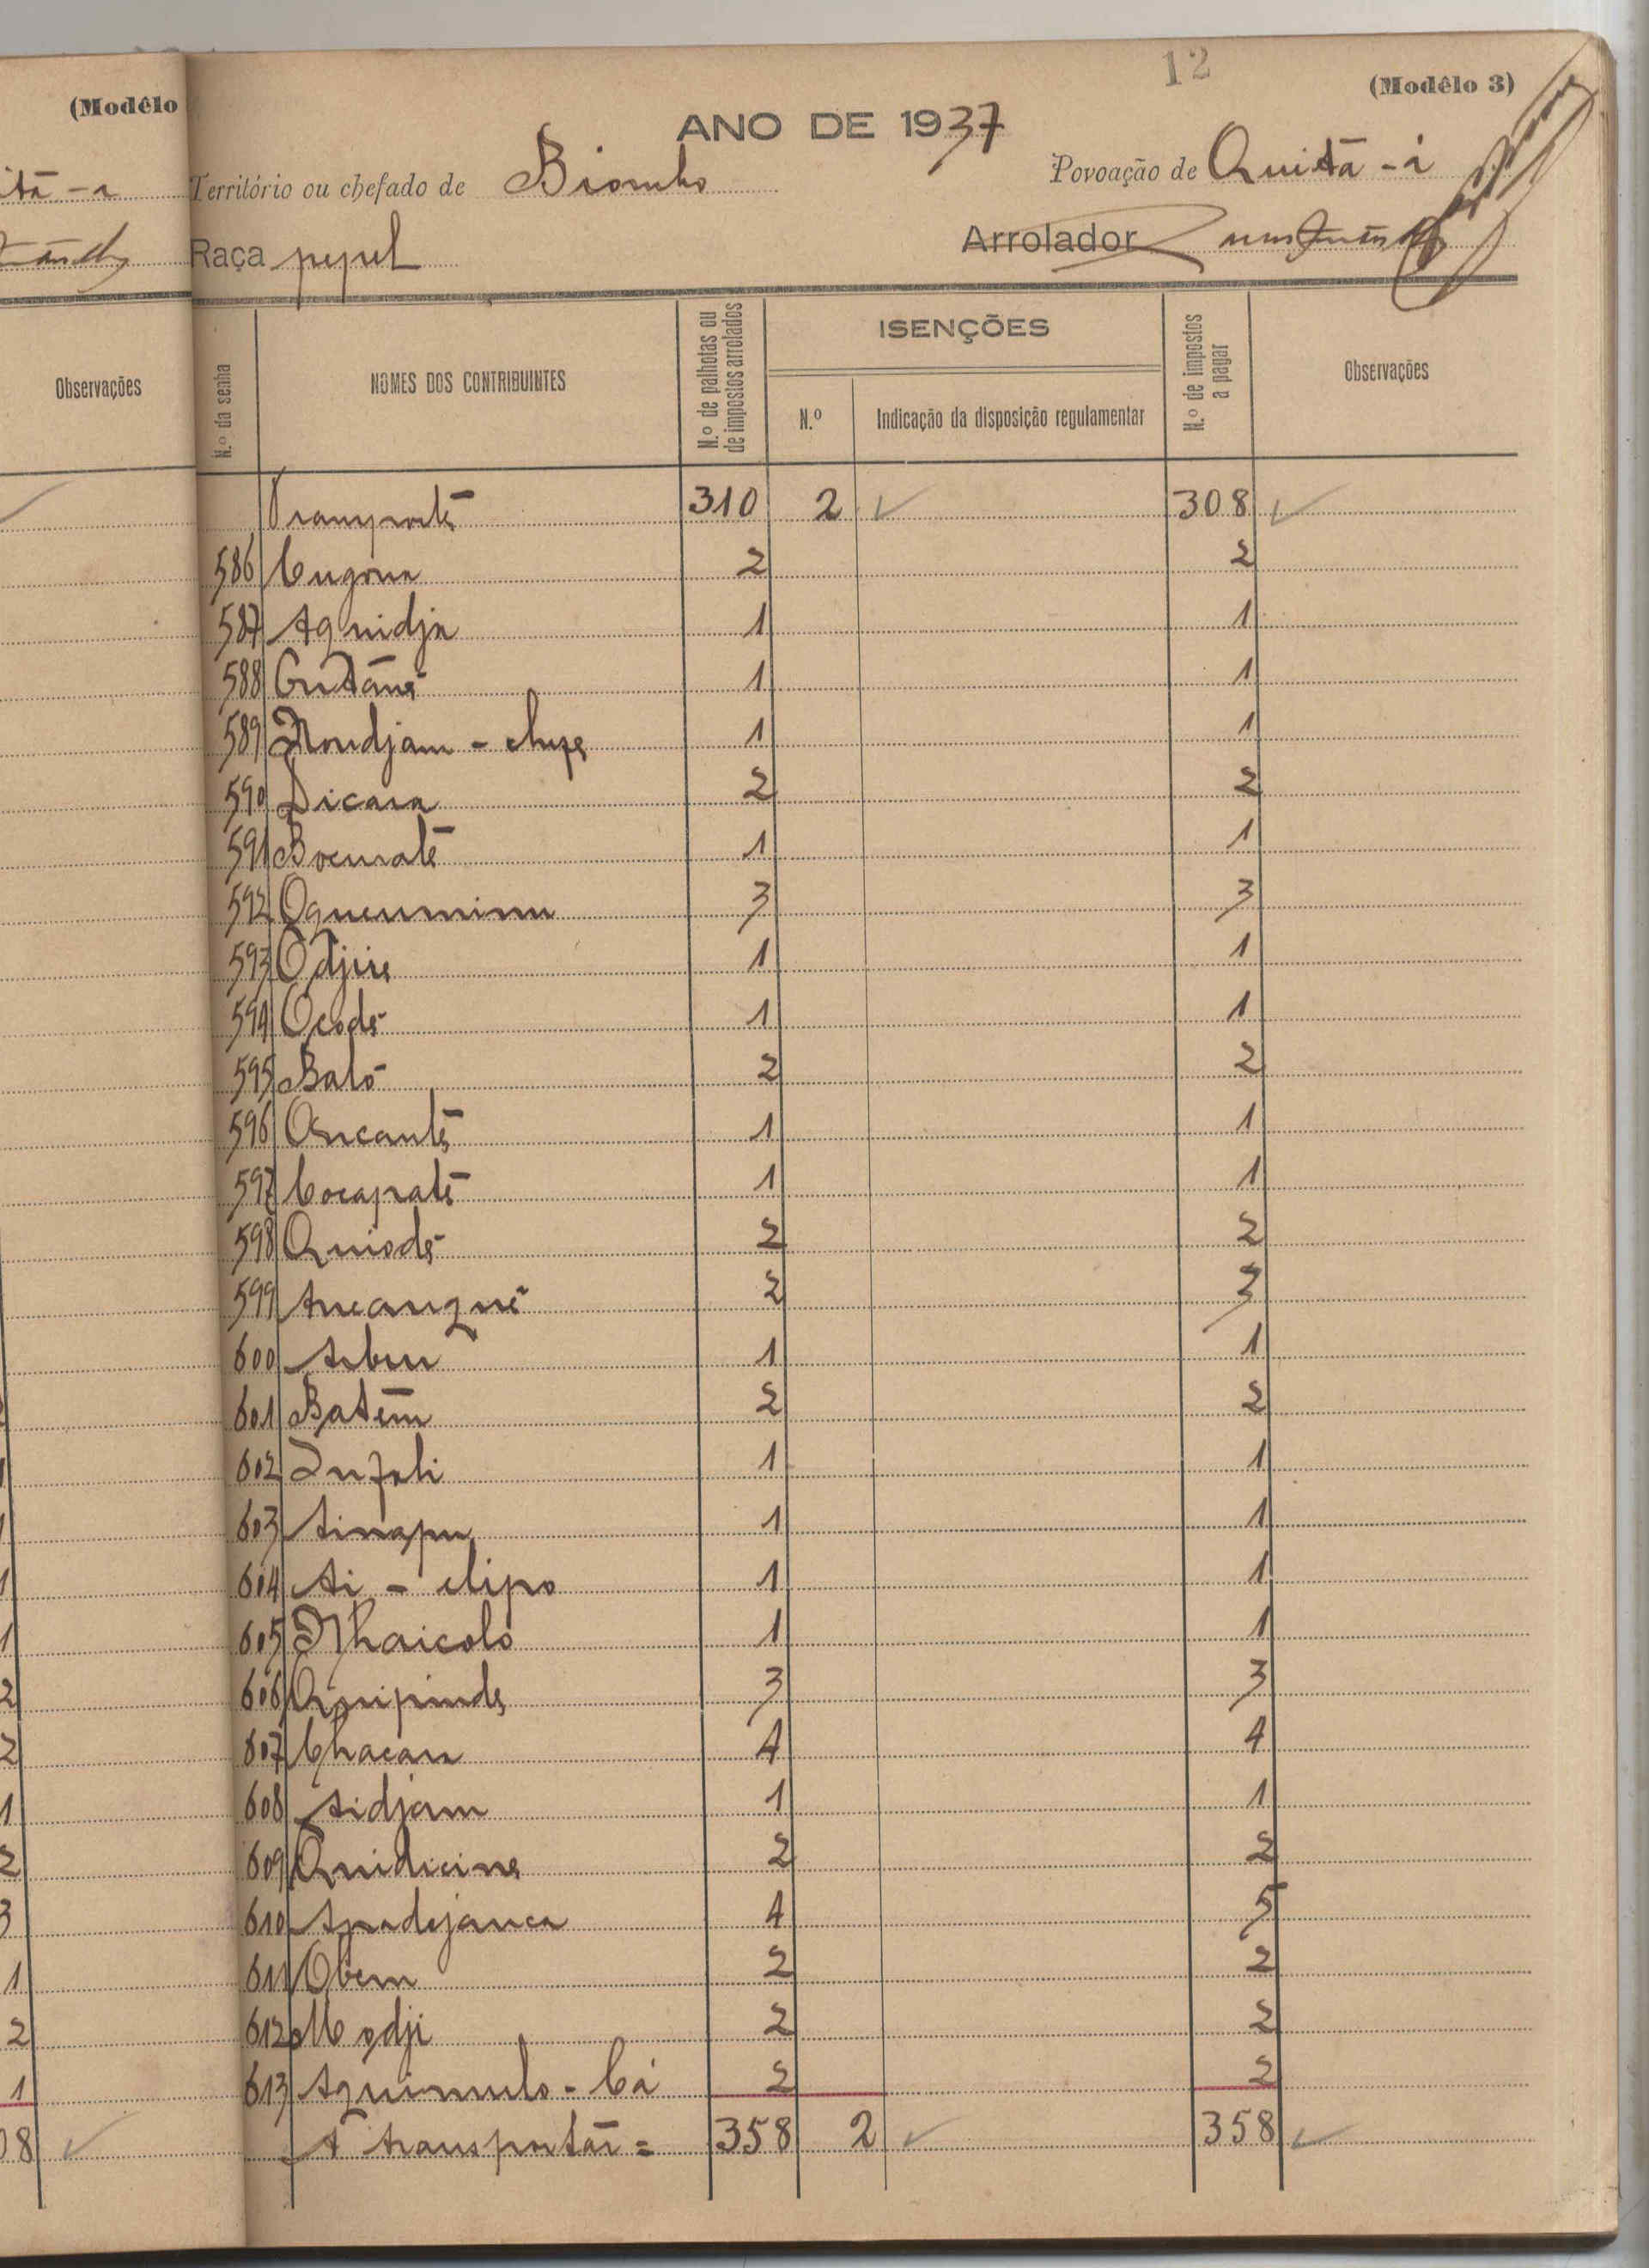 12
(Modêlo
(Modêlo 3)
ANO DE 1937
Território ou chefado de Biombo
Povoação de Quitã - á
Raça pepel
Arrolador
Observações
N.º da senha
NOMES DOS CONTRIBUINTES
N.º de palhotas ou de impostos arrolados
ISENÇÕES
N.º
Indicação da disposição regulamentar
N.º de impostos a pagar
Observações
Transporte 310 2 ✓ 308 ✓
586 Cugona 2 2
587 Aquidja 1 1
588 1 1
589 1 1
590 Dicara 2 2
591 1 1
592 3 3
593 Odjire 1 1
594 Ocodé 1 1
595 Baló 2 2
596 Oncanté 1 1
597 Cocapaté 1 1
598 Quiodé 2 2
599 Ancanqué 2 3
600 1 1
601 Batem 2 2
602 1 1
603 Ainapu 1 1
604 Ai - 1 1
605 Nhaicolo 1 1
606 Quipinde 3 3
607 Chacara 4 4
608 Aidjam 1 1
609 Quidicine 2 2
610 4 5
611 Obem 2 2
612 Modji 2 2
613 Aquimulo - Cá 2 2
A transportar = 358 2 ✓ 358 ✓